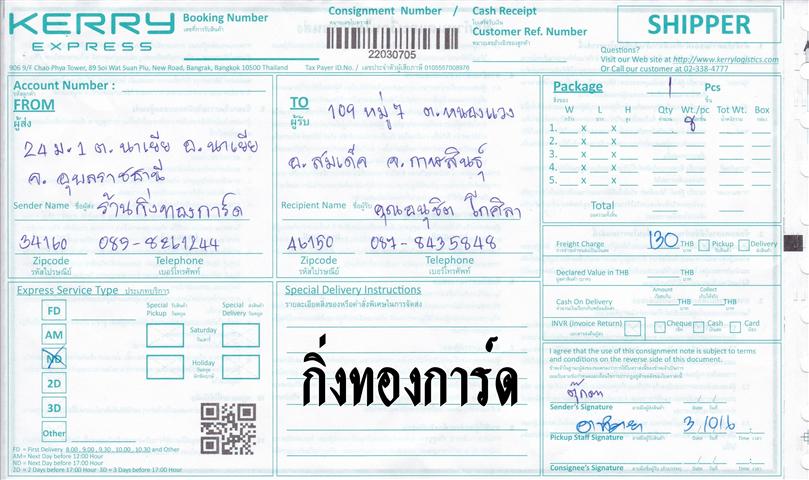 KERRY EXPRESS
Booking Number
เลขที่การรับสินค้า
Consignment Number / Cash Receipt
22030705
Customer Ref. Number
SHIPPER
Questions?
Visit our Web site at http://www.kerrylogistics.com
Or Call our customer at 02-338-4777
906 9/F Chao Phya Tower, 89 Soi Wat Suan Plu, New Road, Bangrak, Bangkok 10500 Thailand
Tax Payer ID.No. / เลขประจำตัวผู้เสียภาษี 0105557008976
Account Number :
FROM
ผู้ส่ง
24 ม.1 ต.นาเยีย อ.นาเยีย
จ. อุบลราชธานี
Sender Name ชื่อผู้ส่ง ร้านกิ่งทองการ์ด
34160
Zipcode
รหัสไปรษณีย์
Telephone
เบอร์โทรศัพท์
TO
ผู้รับ
109 หมู่ 7 ต.หนองแวง
อ. สมเด็จ จ.กาฬสินธุ์
Recipient Name ชื่อผู้รับ คุณอนุชิต โถศิลา
46150 087-8435848
Zipcode Telephone
รหัสไปรษณีย์ เบอร์โทรศัพท์
Package 1 Pcs
W L H Qty Wt./pc Tot Wt. Box
1. x x 8
2. x x
3. x x
4. x x
5. x x
Total
Freight Charge 130 THB Pickup Delivery
Declared Value in THB THB
Amount Collect
Cash On Delivery THB THB
INVR (Invoice Return) Cheque Cash Card
I agree that the use of this consignment note is subject to terms
and conditions on the reverse side of this document.
ตุ๊กตา
Sender's Signature
3/10/6
Pickup Staff Signature
Consignee's Signature
Express Service Type ประเภทบริการ
FD
AM
ND
2D
3D
Other
Special Pickup
Special Delivery
Saturday
วันเสาร์
Holiday
วันหยุด
FD = First Delivery 8.00, 9.00, 9.30, 10.00, 10.30 and Other
AM= Next Day before 12:00 Hour
ND = Next Day before 17:00 Hour
2D = 2 Days before 17:00 Hour 3D = 3 Days before 17:00 Hour
Special Delivery Instructions
รายละเอียดของหรือคำสั่งพิเศษในการจัดส่ง
กิ่งทองการ์ด